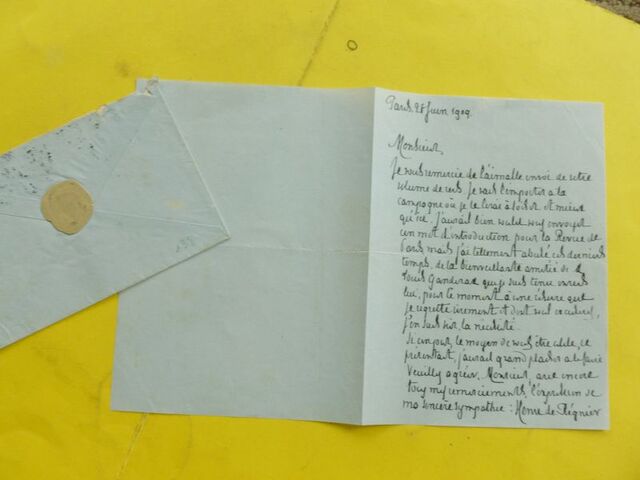 Paris, 28 Juin 1909
Monsieur,
Je vous remercie de l'aimable envoi de votre
volume de vers. Je vais l'emporter à la
campagne où je le lirai à loisir et mieux
qu'ici. J'aurais bien voulu vous envoyer
un mot d'introduction pour la Revue de
Paris mais j'ai tellement abusé ces derniers
temps, de la bienveillante amitié de
Louis Ganderax que je suis tenu envers
lui, pour le moment à une réserve que
je regrette vivement et dont
j'en suis sûr, la nécessité.
Si un jour, le moyen de vous être utile, se
présentait, j'aurais grand plaisir à le faire
Veuillez agréer, Monsieur, avec encore
tous mes remerciements, l'expression de
ma sincère sympathie : Henri de Régnier